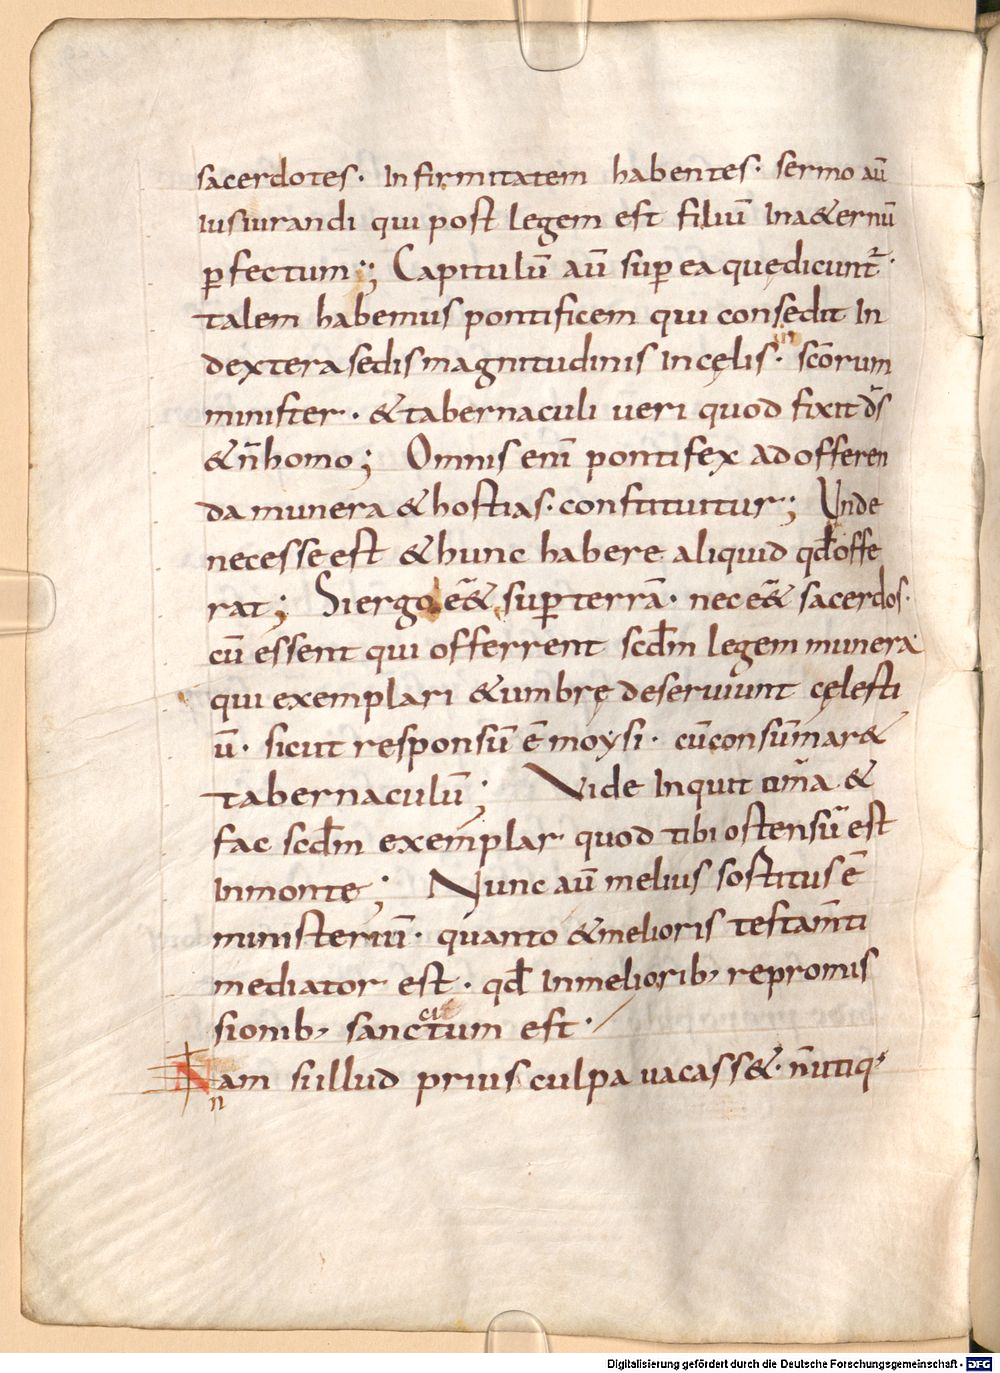 sacerdotes · Infirmitatem habentes · sermo aū
iusiurandi qui post legem est filiū In a&ernū
ꝑfectum ·; Capitulū aū suꝑ ea quędicunt̃ ·
talem habemus pontificem qui consedit In
dextera sedis magnitudinis In cęlis · scōrum
minister · & tabernaculi ueri quod fixit dn̄s
& n̄ homo ; Omnis enī pontifex ad offeren
da munera & hostias · constituitur ; Unde
necesse est & hunc habere aliquid qđ offe
rat ; Si ergo eē& suꝑ terrā · nec eē& sacerdos ·
cū essent qui offerrent scđm legem munera
qui exemplari & umbrę deseruiunt cęlesti
ū · sicut responsū ē moysi · cū consūmar&
tabernaculū ; Vide Inquit om̄a &
fac scđm exemplar quod tibi ostensū est
In monte ; Nunc aū melius sostitus ē
ministeriū · quanto & melioris testam̄ti
mediator est · qđ In meliorib; repromis
sionib; sanctum est ·
Nam si illud prius culpa uacass& · n̄ utiq;
Digitalisierung gefördert durch die Deutsche Forschungsgemeinschaft - DFG